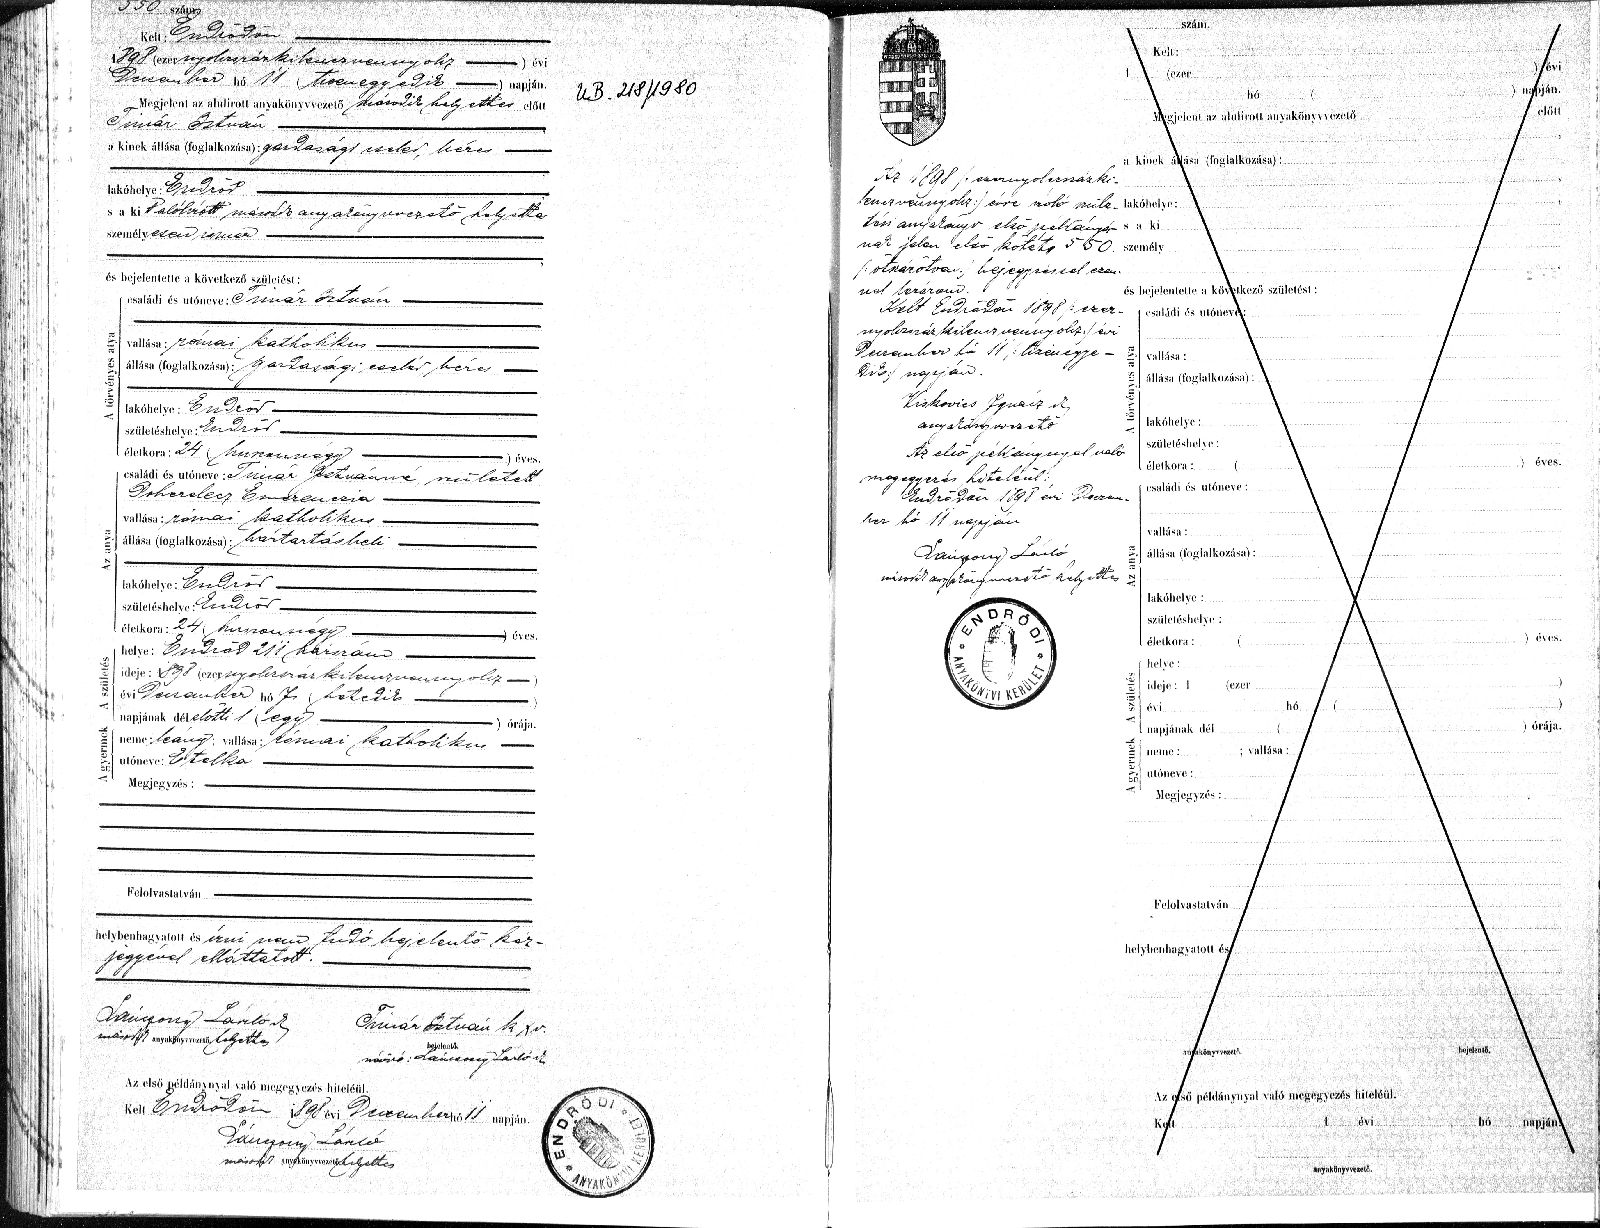 550 szám.
Kelt: Endrődön
1898 (ezer nyolczszázkilenczvennyolcz) évi
December hó 11 (tizenegyedik) napján.
Megjelent az alulirott anyakönyvvezető második helyettes előtt
Timár István
a kinek állása (foglalkozása): gazdasági cseléd, béres
lakóhelye: Endrőd
s a ki alólirott második anyakönyvvezető helyettes
személyesen ismer
és bejelentette a következő születést:
A törvényes atya
családi és utóneve: Timár István
vallása: római katholikus
állása (foglalkozása): gazdasági cseléd, béres
lakóhelye: Endrőd
születéshelye: Endrőd
életkora: 24 (huszonnégy) éves.
Az anya
családi és utóneve: Timár Istvánné született
Emerenczia
vallása: római katholikus
állása (foglalkozása): háztartásbeli
lakóhelye: Endrőd
születéshelye: Endrőd
életkora: 24 (huszonnégy) éves.
A születés
helye: Endrőd 211 házszám
ideje: 1898 (ezer nyolczszázkilenczvennyolcz)
évi December hó 7 (hetedik)
napjának dél előtti 1 (egy) órája.
A gyermek
neme: leány; vallása: római katholikus
utóneve: Etelka
Megjegyzés:
Felolvastatván
helybenhagyatott és irni nem tudó bejelentő kéz-
jegyével elláttatott.
László
Timár István k. x v.
második anyakönyvvezető helyettes
bejelentő.
László
Az első példánynyal való megegyezés hiteléül.
Kelt Endrődön 1898 évi December hó 11 napján.
László
második anyakönyvvezető helyettes
ENDRŐDI
ANYAKÖNYVI KERÜLET
U.B. 218/1980
Az 1898 /: ezernyolczszázki-
lenczvennyolcz :/ évre szóló szüle-
tési anyakönyv első példányá-
nak jelen első kötetét 550
/: ötszázötven :/ bejegyzéssel ezen-
nel lezárom.
Kelt Endrődön 1898 /: ezer-
nyolczszázkilenczvennyolcz :/ évi
December hó 11 /: tizenegye-
dik :/ napján.
Ignácz
anyakönyvvezető
Az első példánynyal való
megegyezés hiteléül:
Endrődön 1898 évi Decem-
ber hó 11 napján
László
második anyakönyvvezető helyettes
ENDRŐDI
ANYAKÖNYVI KERÜLET
szám.
Kelt:
1 (ezer ) évi
hó ( ) napján.
Megjelent az alulirott anyakönyvvezető előtt
a kinek állása (foglalkozása):
lakóhelye:
s a ki
személy
és bejelentette a következő születést:
A törvényes atya
családi és utóneve:
vallása:
állása (foglalkozása):
lakóhelye:
születéshelye:
életkora: ( ) éves.
Az anya
családi és utóneve:
vallása:
állása (foglalkozása):
lakóhelye:
születéshelye:
életkora: ( ) éves.
A születés
helye:
ideje: 1 (ezer )
évi hó ( )
napjának dél ( ) órája.
A gyermek
neme: ; vallása:
utóneve:
Megjegyzés:
Felolvastatván
helybenhagyatott és
anyakönyvvezető.
bejelentő.
Az első példánynyal való megegyezés hiteléül.
Kelt 1 évi hó napján.
anyakönyvvezető.